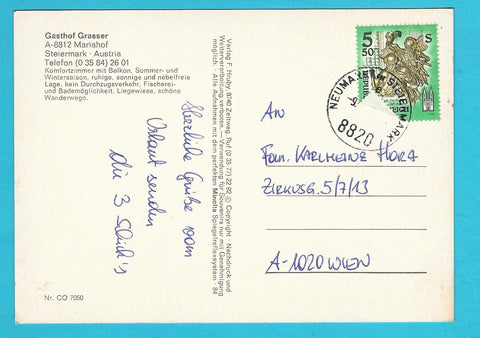 Gasthof Grasser
A-8812 Mariahof
Steiermark · Austria
Telefon (0 35 84) 26 01
Komfortzimmer mit Balkon, Sommer- und
Wintersaison, ruhige, sonnige und nebelfreie
Lage, kein Durchzugsverkehr, Fischerei-
und Bademöglichkeit, Liegewiese, schöne
Wanderwege.
Herzliche Grüße vom
Urlaub senden
die 3
Nr. CO 7050
Verlag F. Hruby, 8740 Zeltweg, Ruf (0 35 77) 22 92 © Copyright · Nachdruck und
Weiterverarbeitung verboten. — Verwendung für Souvenirs nur mit Genehmigung
möglich · Alle Aufnahmen mit dem perfekten Minolta Spiegelreflexsystem · 84
5 S
50
NEUMARKT IN STEIERMARK
8820
AN
Fam. KARLHEINZ HORA
ZIRKUSG. 5/7/13
A-1020 WIEN